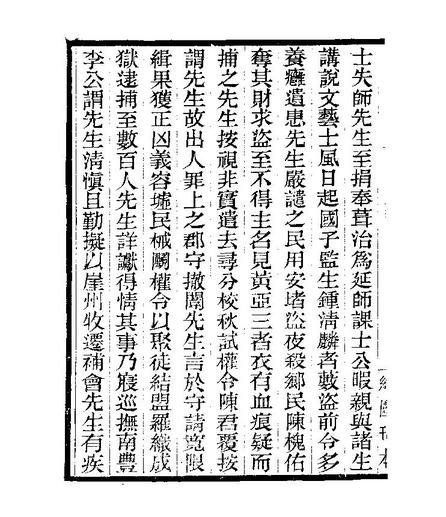 士失師先生至捐奉葺治為延師課士公暇親與諸生
講說文藝士風日起國子監生鍾淸麟者藪盜前令多
養癰遺患先生嚴譴之民用安堵盜夜殺鄉民陳槐佑
奪其財求盜至不得主名見黃亞三者衣有血痕疑而
捕之先生按視非實遣去尋分校秋試權令陳君覆按
謂先生故出人罪上之郡守撤闈先生言於守請寬限
緝果獲正凶義容墟民械鬭權令以聚徒結盟羅織成
獄逮捕至數百人先生詳讞得情其事乃寢巡撫南豐
李公謂先生淸愼且勤擬以崖州牧遷補會先生有疾
刊本